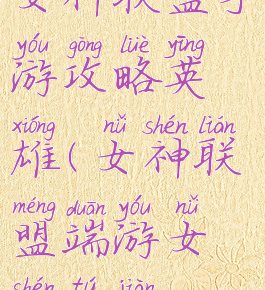 女神联盟手
yóu gōng lüè yīng
游攻略英
xióng nǚ shén lián
雄(女神联
méng duān yóu nǚ
盟端游女
shén tú jiàn